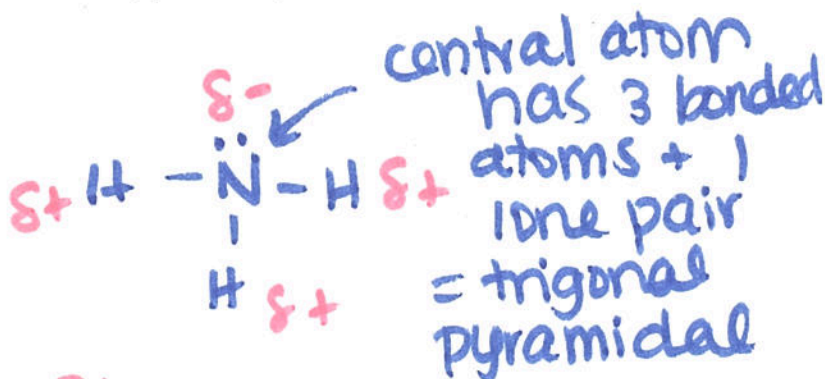 central atom
has 3 bonded
atoms + 1
lone pair
= trigonal
pyramidal
δ-
δ+ H - N̈ - H δ+
|
H δ+